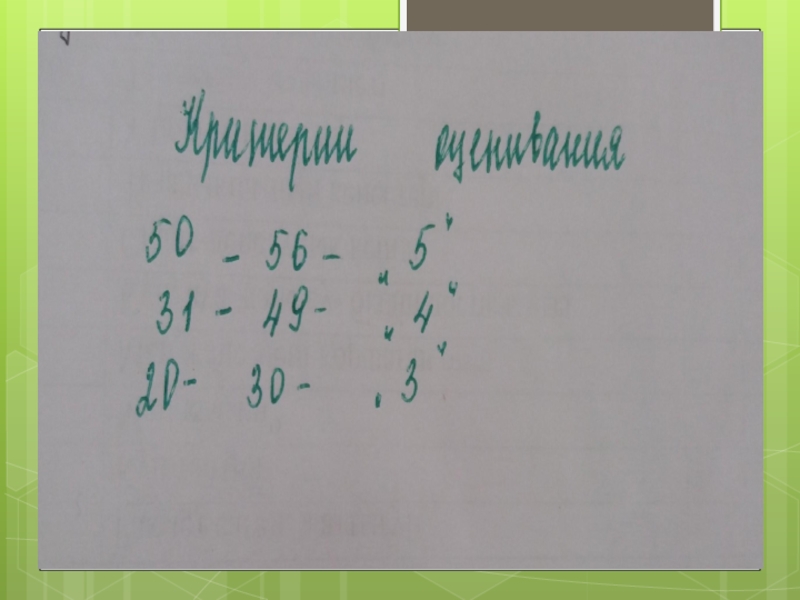 Критерии оценивания
50 - 56 - „5"
31 - 49 - „4"
20 - 30 - „3"